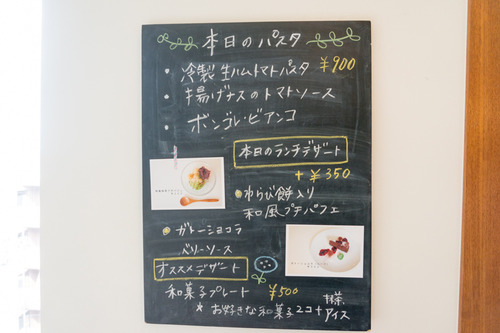 本日のパスタ
・冷製生ハムトマトパスタ ¥900
・揚げナスのトマトソース
・ボンゴレ・ビアンコ
本日のランチデザート
+¥350
●わらび餅入り
和風プチパフェ
●ガトーショコラ
ベリーソース
オススメデザート
和菓子プレート ¥500
*お好きな和菓子2コ+抹茶アイス